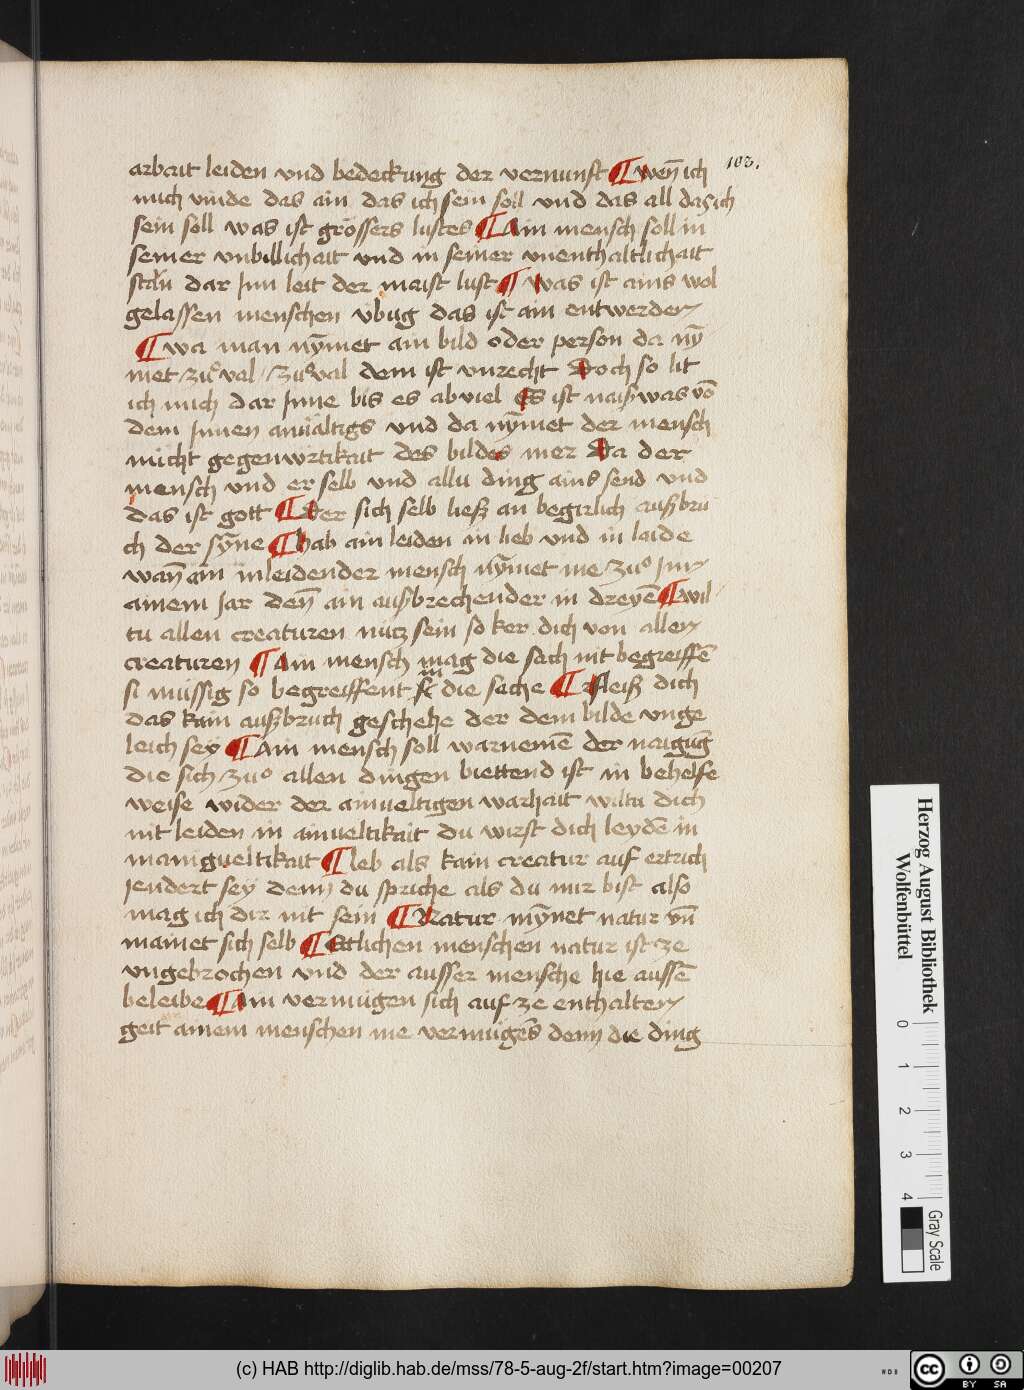 103.
arbait leiden vnd bedeckung der vernunft ¶ wen̄ ich
mich vinde das ain das ich sein soll vnd das all das ich
sein soll was ist grössers lustes ¶ Ain mensch soll in
seiner vnbillichait vnd in seiner vnenthaltlichait
stan dar Jnn leit der maist lust ¶ was ist ains wol
gelassen menschen vbug das ist ain entwerden
¶ wa man nȳmet ain bild oder person da nȳ
met zuͦ val / zuͦ val dem ist vnrecht Doch so lit
ich mich dar Jnne bis es ab viel Es ist naiswas vō
dem Jnnen anuältigs vnd da nȳmet der mensch
nücht gegenwrtikait des bildes mer Da der
mensch vnd er selb vnd allu ding ains send vnd
das ist gott ¶ Der sich selb ließ an begirlich außbru
ch der sȳne ¶ hab ain leiden in lieb vnd in laide
wan̄ ain inleidender mensch nȳmet me zuͦ Jn
ainem Jar den̄ ain außbrechender in dreyē ¶ wil
tu allen creaturen nücz sein so ker dich von allen
creaturen ¶ Ain mensch mag die sach nit begreiffē
si müssig so begreiffent in die sache ¶ fleiß dich
das kain außbruch geschehe der dem bilde vnge
leich sey ¶ Ain mensch soll warnemē der naigūg
die sich zuͦ allen dingen biettend ist in behelfe
weise wider der ainueltigen warhait wiltu dich
nit leiden in ainueltikait du wirst dich leydē in
manigueltikait ¶ leb als kain creatur auf ertrich
jendert sey denn du spriche als du mir bist also
mag ich dir nit sein ¶ Natur mȳnet natur vn̄
mainet sich selb ¶ Ettlichen menschen natur ist ze
vngebrochen vnd der ausser mensche hie aussē
beleibe ¶ Ain vermügen sich auf ze enthalten
geit ainem menschen me vermügēs denn die ding
Herzog August Bibliothek
Wolfenbüttel
0 1 2 3 4
Gray Scale
(c) HAB http://diglib.hab.de/mss/78-5-aug-2f/start.htm?image=00207
cc BY SA